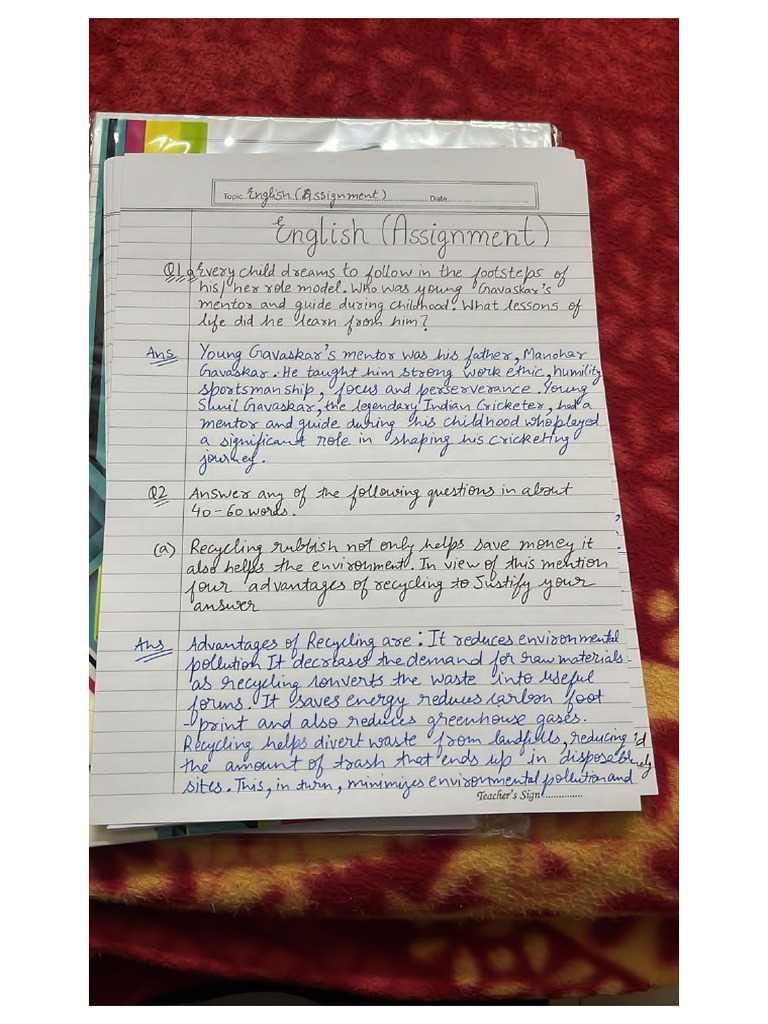 Topic English (Assignment) Date
English (Assignment)
Q1 a Every child dreams to follow in the footsteps of
his/her role model. Who was young Gavaskar's
mentor and guide during childhood. What lessons of
life did he learn from him?
Ans Young Gavaskar's mentor was his father, Manohar
Gavaskar. He taught him strong work ethic, humility
sportsmanship, focus and perserverance. Young
Sunil Gavaskar, the legendary Indian Cricketer, had a
mentor and guide during his childhood who played
a significant role in shaping his cricketing
journey.
Q2 Answer any of the following questions in about
40-60 words.
(a) Recycling rubbish not only helps save money it
also helps the environment. In view of this mention
four advantages of recycling to Justify your
answer
Ans Advantages of Recycling are: It reduces environmental
pollution It decreases the demand for raw materials
as recycling converts the waste into useful
forms. It saves energy reduces carbon foot
-print and also reduces greenhouse gases.
Recycling helps divert waste from landfills, reducing
the amount of trash that ends up in dispose
sites. This, in turn, minimizes environmental pollution and
Teacher's Sign